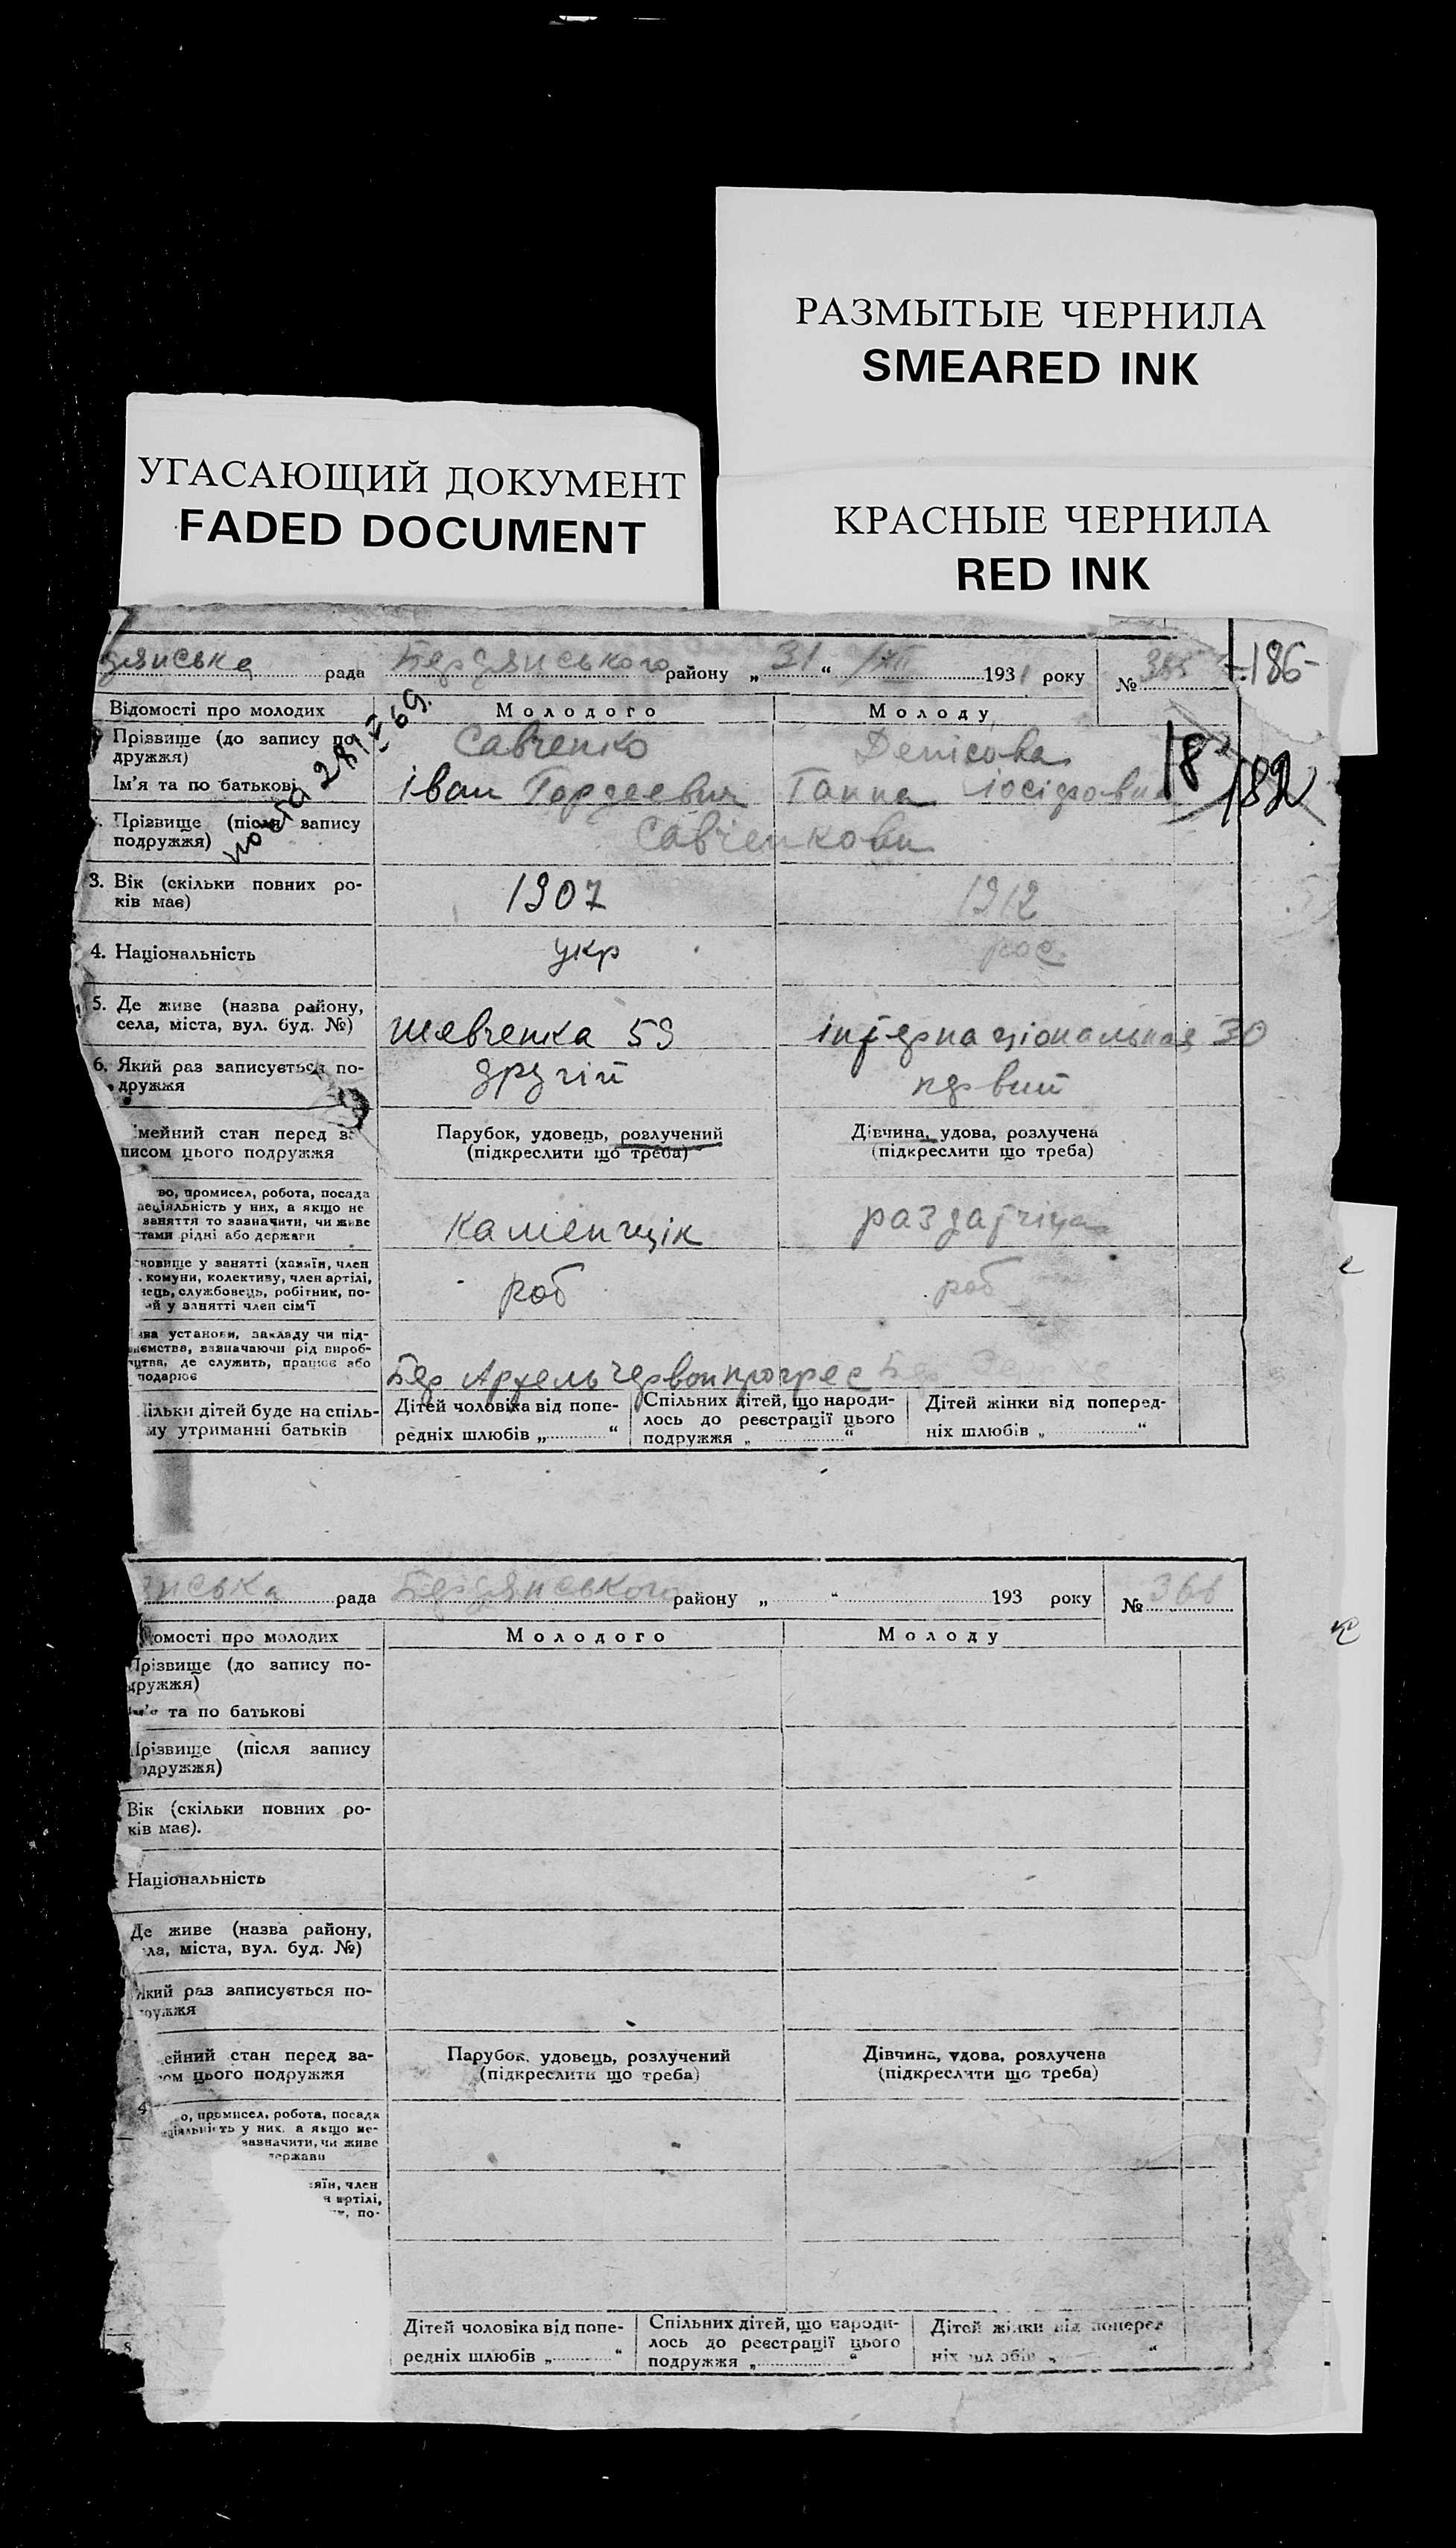 РАЗМЫТЫЕ ЧЕРНИЛА
SMEARED INK
УГАСАЮЩИЙ ДОКУМЕНТ
FADED DOCUMENT
КРАСНЫЕ ЧЕРНИЛА
RED INK
дянська рада Бердянського району „ 31 “ /XII 1931 року № 365
-186-
Відомості про молодих Молодого Молоду
Прізвище (до запису подружжя) Савченко Денісова
18 182
Ім'я та по батькові Іван Гордеевич Ганна Іосіфовна
Прізвище (після запису подружжя) Савченкови
3. Вік (скільки повних років має) 1907 1912
4. Національність укр рос.
5. Де живе (назва району, села, міста, вул. буд. №) Шевченка 59 інтернаціональная 30
6. Який раз записується подружжя другій первий
мейний стан перед записом цього подружжя
Парубок, удовець, розлучений (підкреслити що треба)
Дівчина, удова, розлучена (підкреслити що треба)
во, промисел, робота, посада
ціяльність у них, а якщо не
заняття то зазначити, чи живе
тами рідні або держави
Каменщік раздатчіца
новище у занятті (хазяїн, член
комуни, колективу, член артілі,
нець, службовець, робітник, по-
ий у занятті член сім'ї
роб роб
ва установи, закладу чи під-
ємства, зазначаючи рід вироб-
цтва, де служить, працює або
подарює
Бер Артель червон прогрес Бер
ільки дітей буде на спільму утриманні батьків
Дітей чоловіка від попередніх шлюбів „ “
Спільних дітей, що народилось до реєстрації цього подружжя „ “
Дітей жінки від попередніх шлюбів „ “
янська рада Бердянського району „ “ 193 року № 366
омості про молодих Молодого Молоду
Прізвище (до запису подружжя)
та по батькові
Прізвище (після запису подружжя)
Вік (скільки повних років має).
Національність
Де живе (назва району, ла, міста, вул. буд. №)
Який раз записується подружжя
ейний стан перед записом цього подружжя
Парубок, удовець, розлучений (підкреслити що треба)
Дівчина, удова, розлучена (підкреслити що треба)
о, промисел, робота, посада
ціяльність у них, а якщо не-
зазначити, чи живе
держави
яїн, член
артілі,
по-
Дітей чоловіка від попередніх шлюбів „ “
Спільних дітей, що народилось до реєстрації цього подружжя „ “
Дітей жінки від поперед
ніх шлюбів „ “